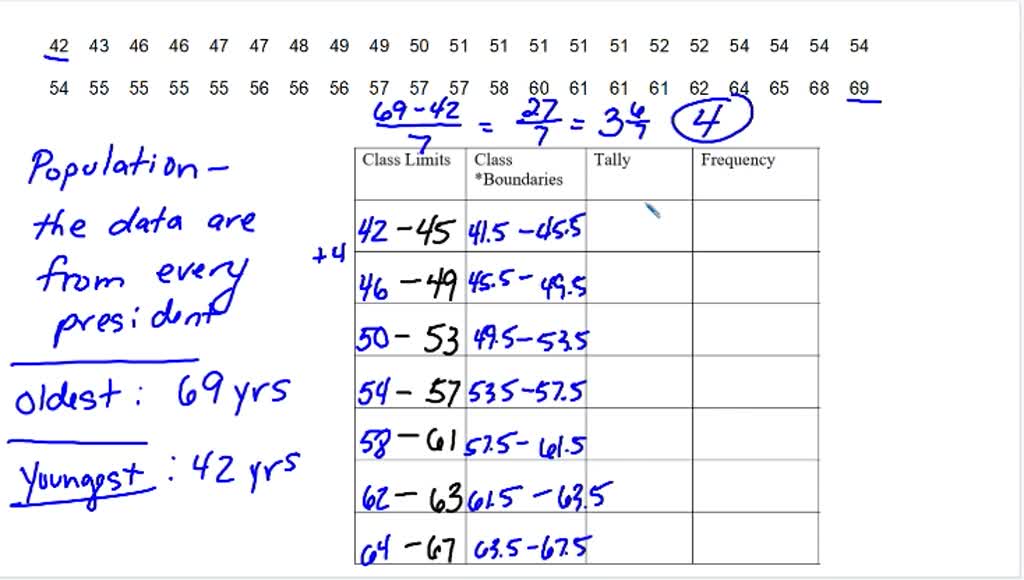 42 43 46 46 47 47 48 49 49 50 51 51 51 51 51 52 52 54 54 54 54
54 55 55 55 55 56 56 56 57 57 57 58 60 61 61 61 62 64 65 68 69
69-42/7 = 27/7 = 3 6/7 4
Population-
the data are
from every
president
oldest: 69 yrs
Youngest: 42 yrs
+4
Class Limits Class *Boundaries Tally Frequency
42-45 41.5-45.5
46-49 45.5-49.5
50-53 49.5-53.5
54-57 53.5-57.5
58-61 57.5-61.5
62-63 61.5-63.5
64-67 63.5-67.5